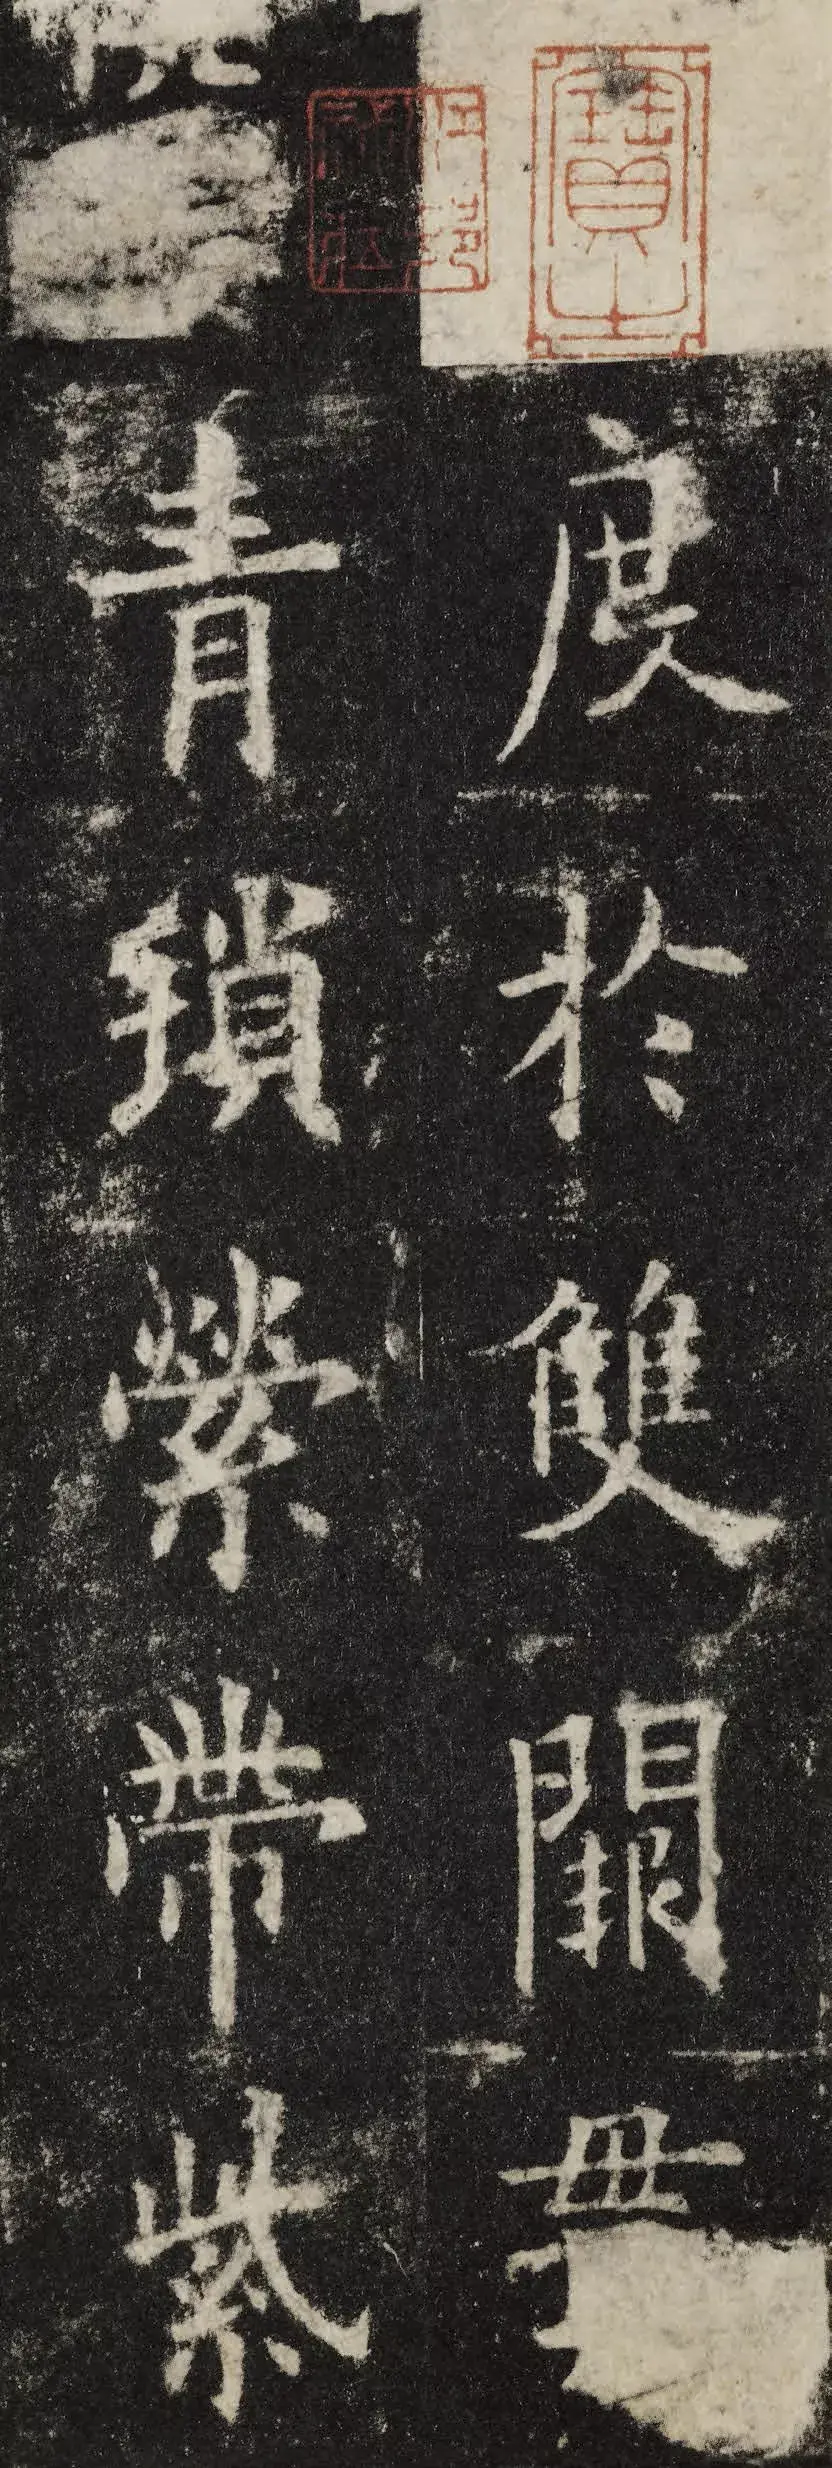 度於雙闕
青瑣縈帶紫